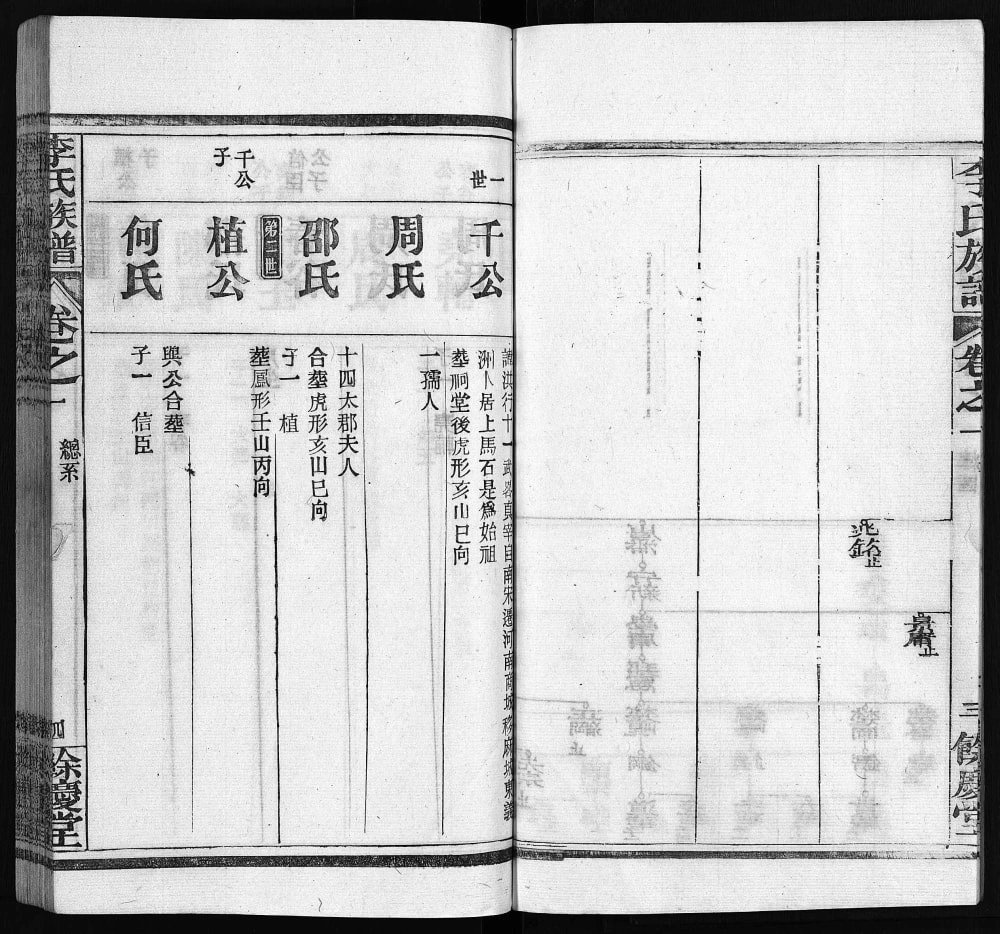 李氏族譜
卷之一
三
餘慶堂
兆銘止
止
一世
千公
諱洪行十一武畧真宰自南宋遷河南商城移麻城東義
洲人居上馬石是爲始祖
塟祠堂後虎形亥山巳向
周氏
一孺人
邵氏
十四太郡夫人
合塟虎形亥山巳向
子一 植
第二世
千公子
植公
塟鳳形壬山丙向
何氏
與公合塟
子一 信臣
李氏族譜
卷之一
總系
四
餘慶堂